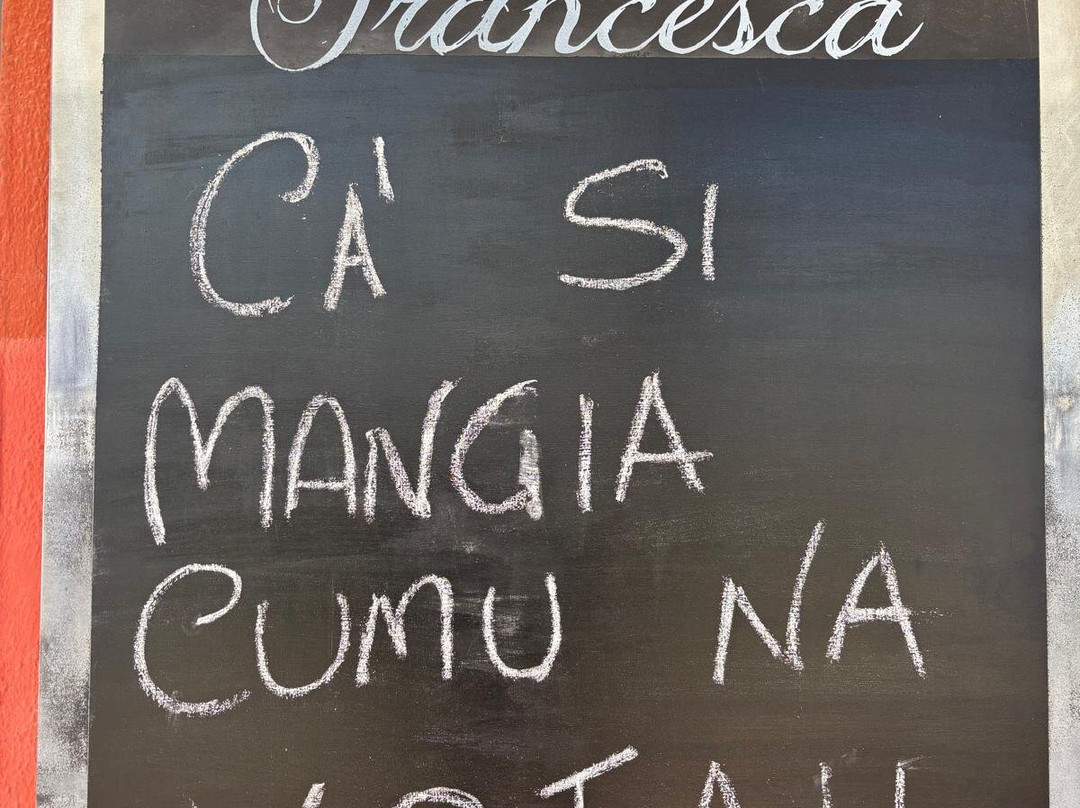 Francesca
CA' SI
MANGIA
CUMU NA